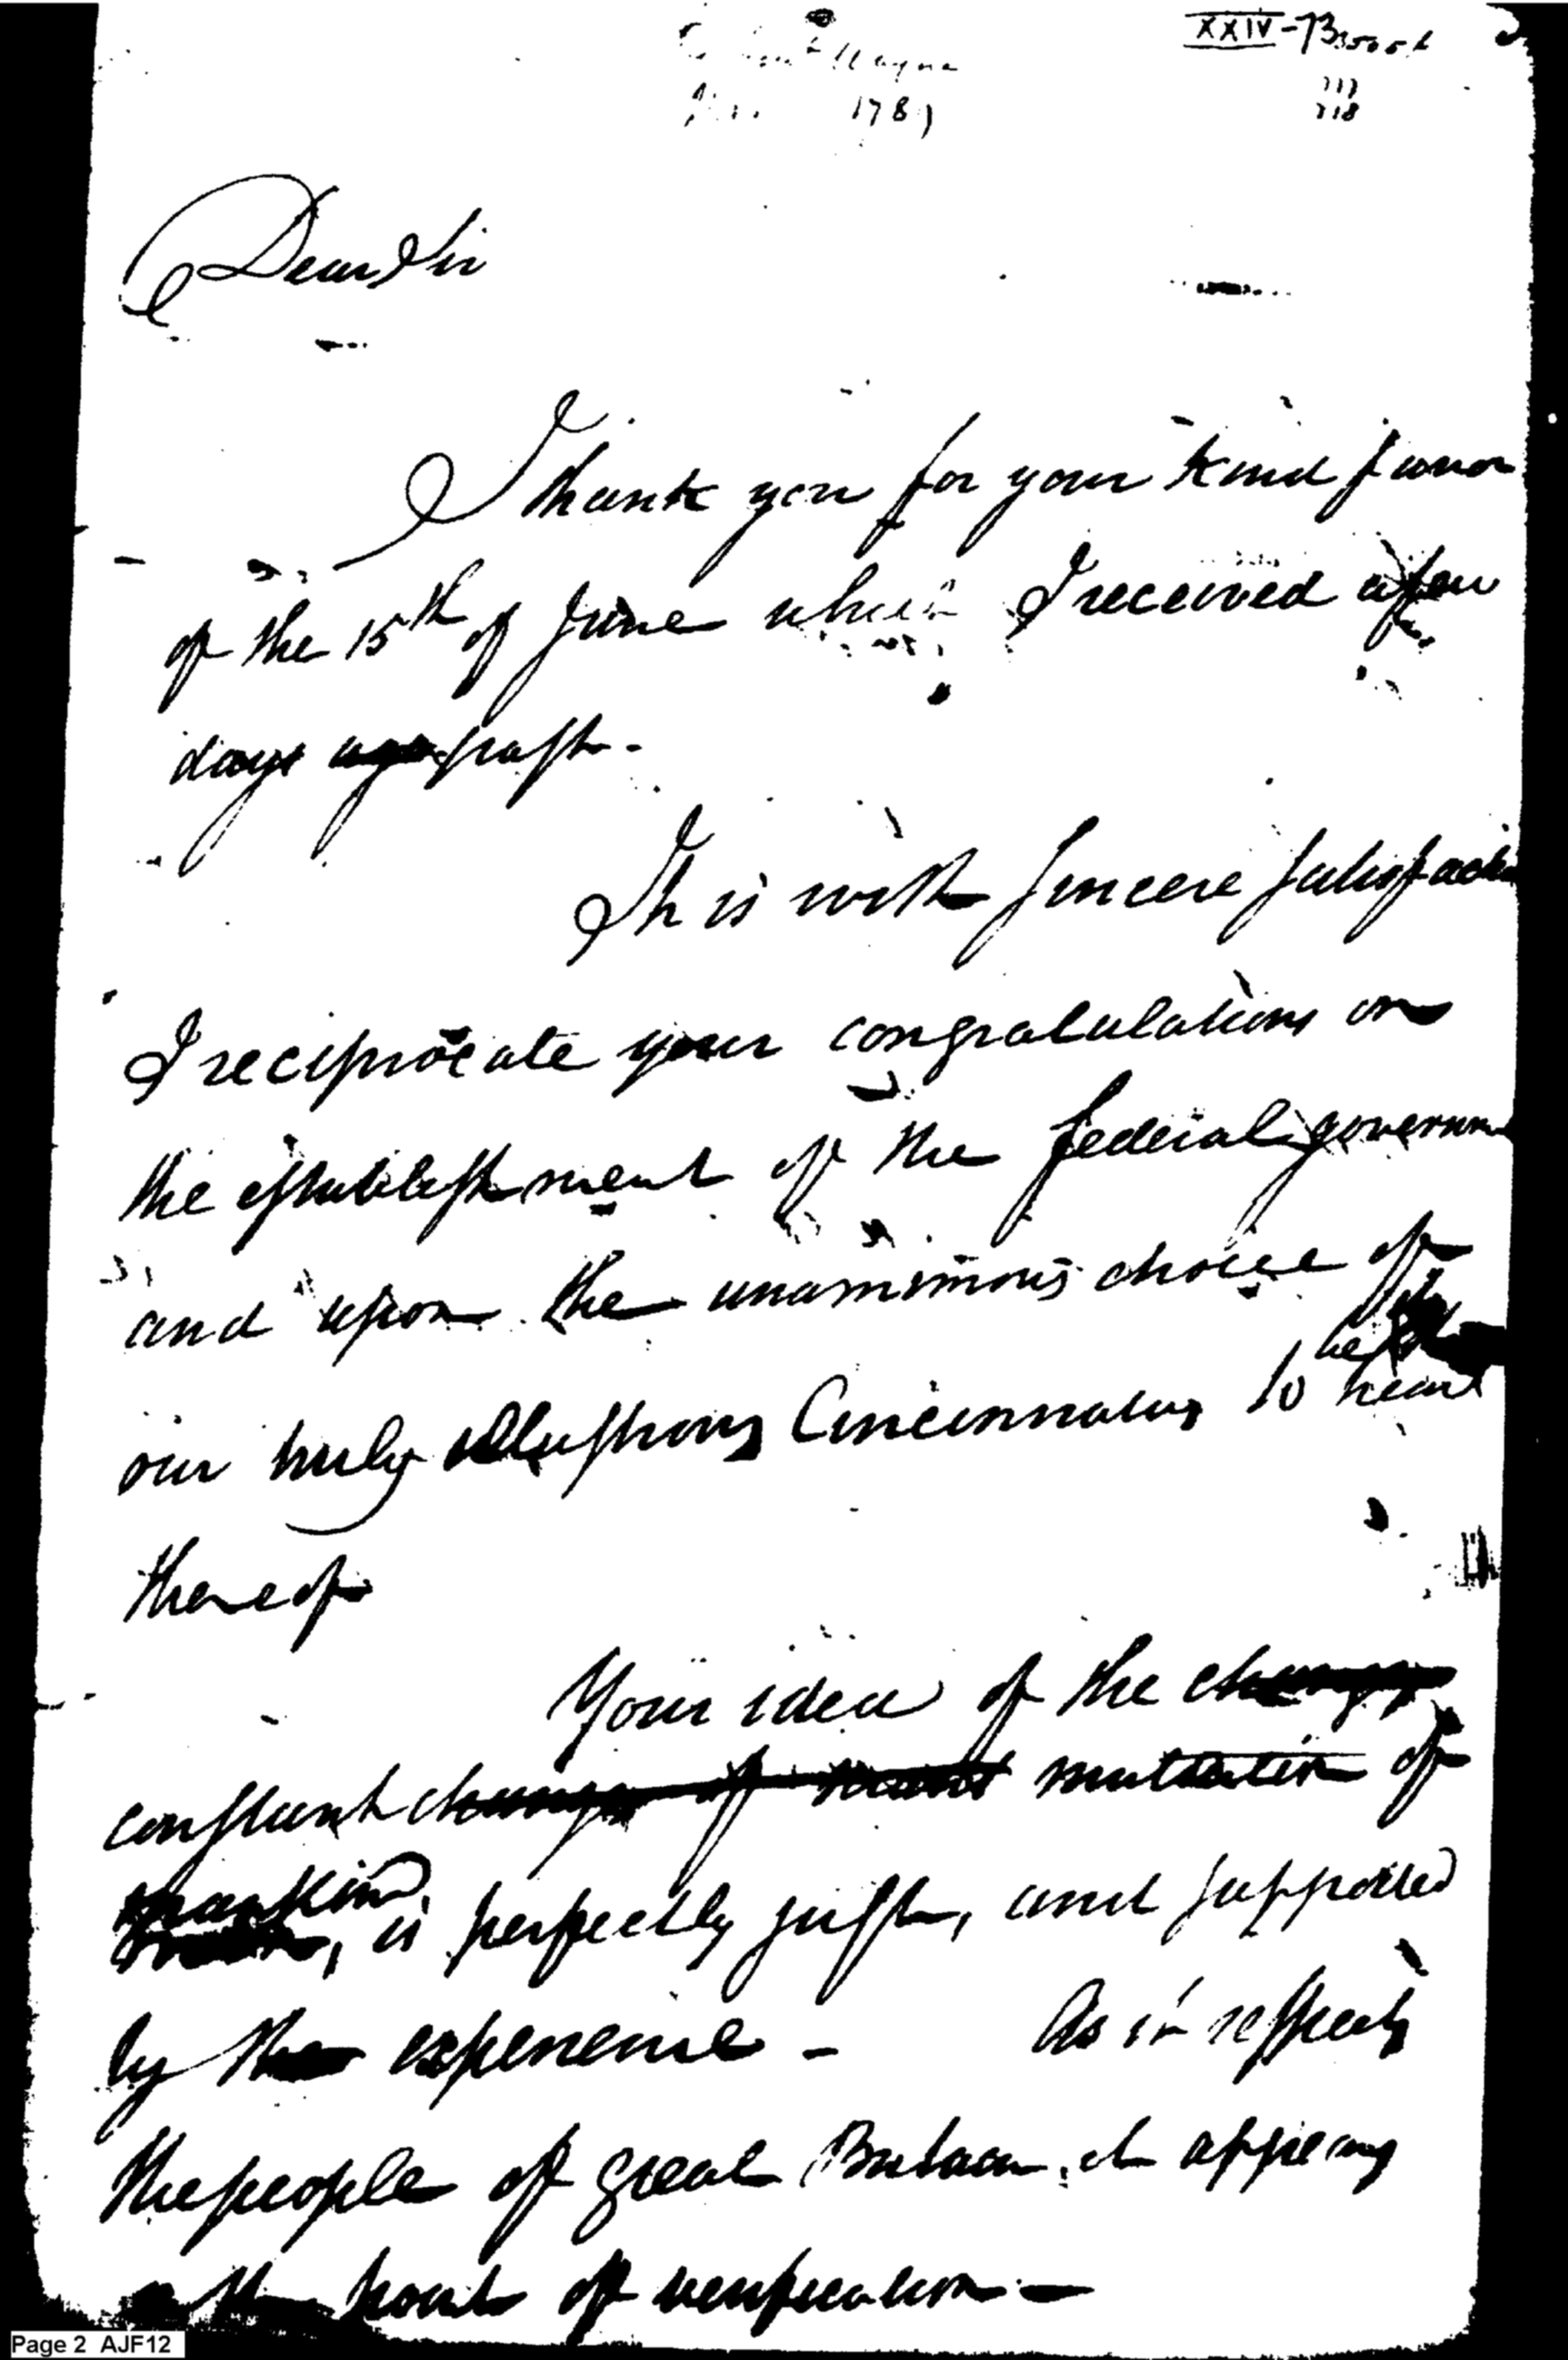 Wayne
1789
XXIV-73
Dear Sir
I thank you for your kind favor
of the 15th of June which I received a few
days ago past-
It is with sincere satisfaction
I reciprocate your congratulations on
the establishment of the federal governm
and upon the unanimous choice of
be
our truly illustrious Cincinnatus to head
thereof
Your idea of the change
constant change of mutation of
mankind
, is perfectly just, and supported
by the experience - As it respects
the people of great Britain, it appears
point of verification -
Page 2 AJF12